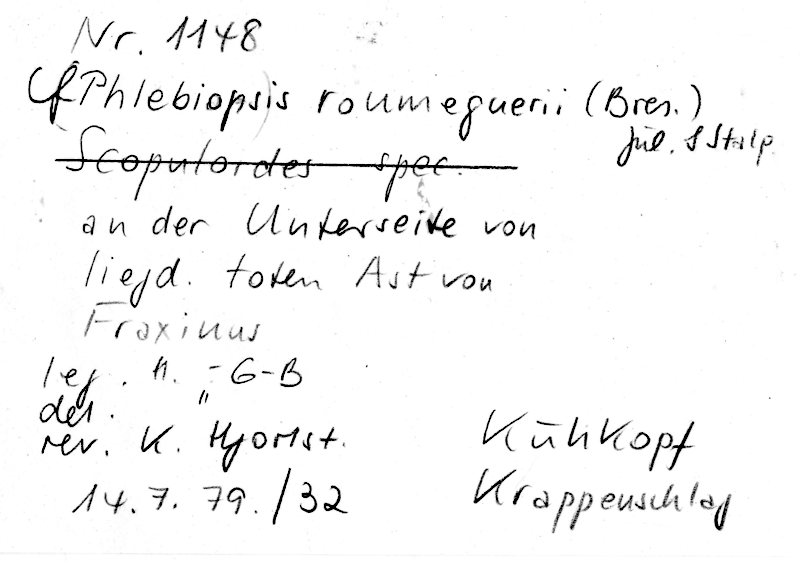 Nr. 1148
cf Phlebiopsis roumeguerii (Bres.)
Jül. & Stalp.
Scopuloides spec.
an der Unterseite von
liegd. toten Ast von
Fraxinus
leg. H. - G-B
det. "
rev. K. Hjortst.
14.7.79./32
Kühkopf
Krappenschlag